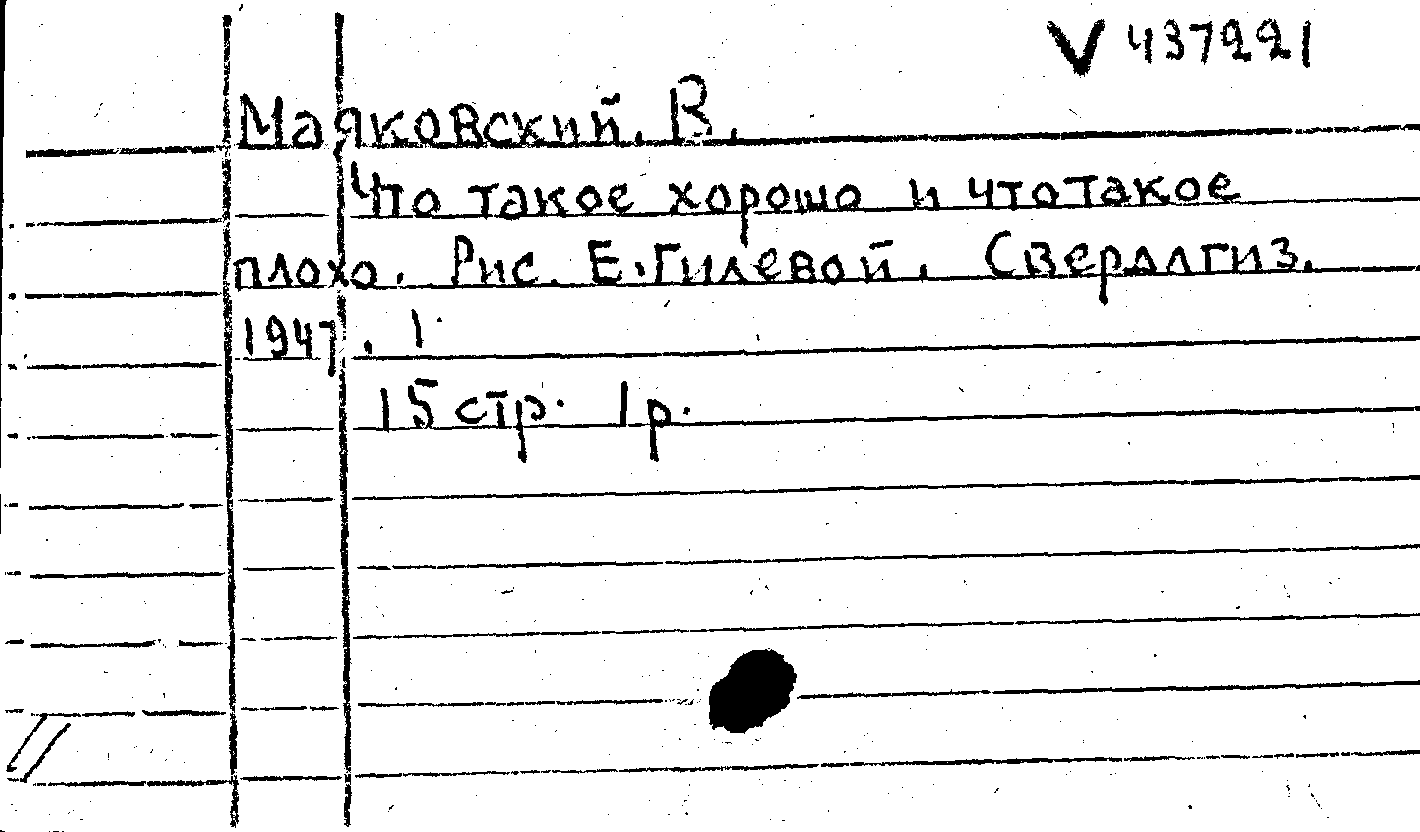 V 437221
Маяковский, В.
Что такое хорошо и что такое
плохо. Рис. Е. Гилевой. Свердлгиз.
1947. 1
15 стр. 1 р.